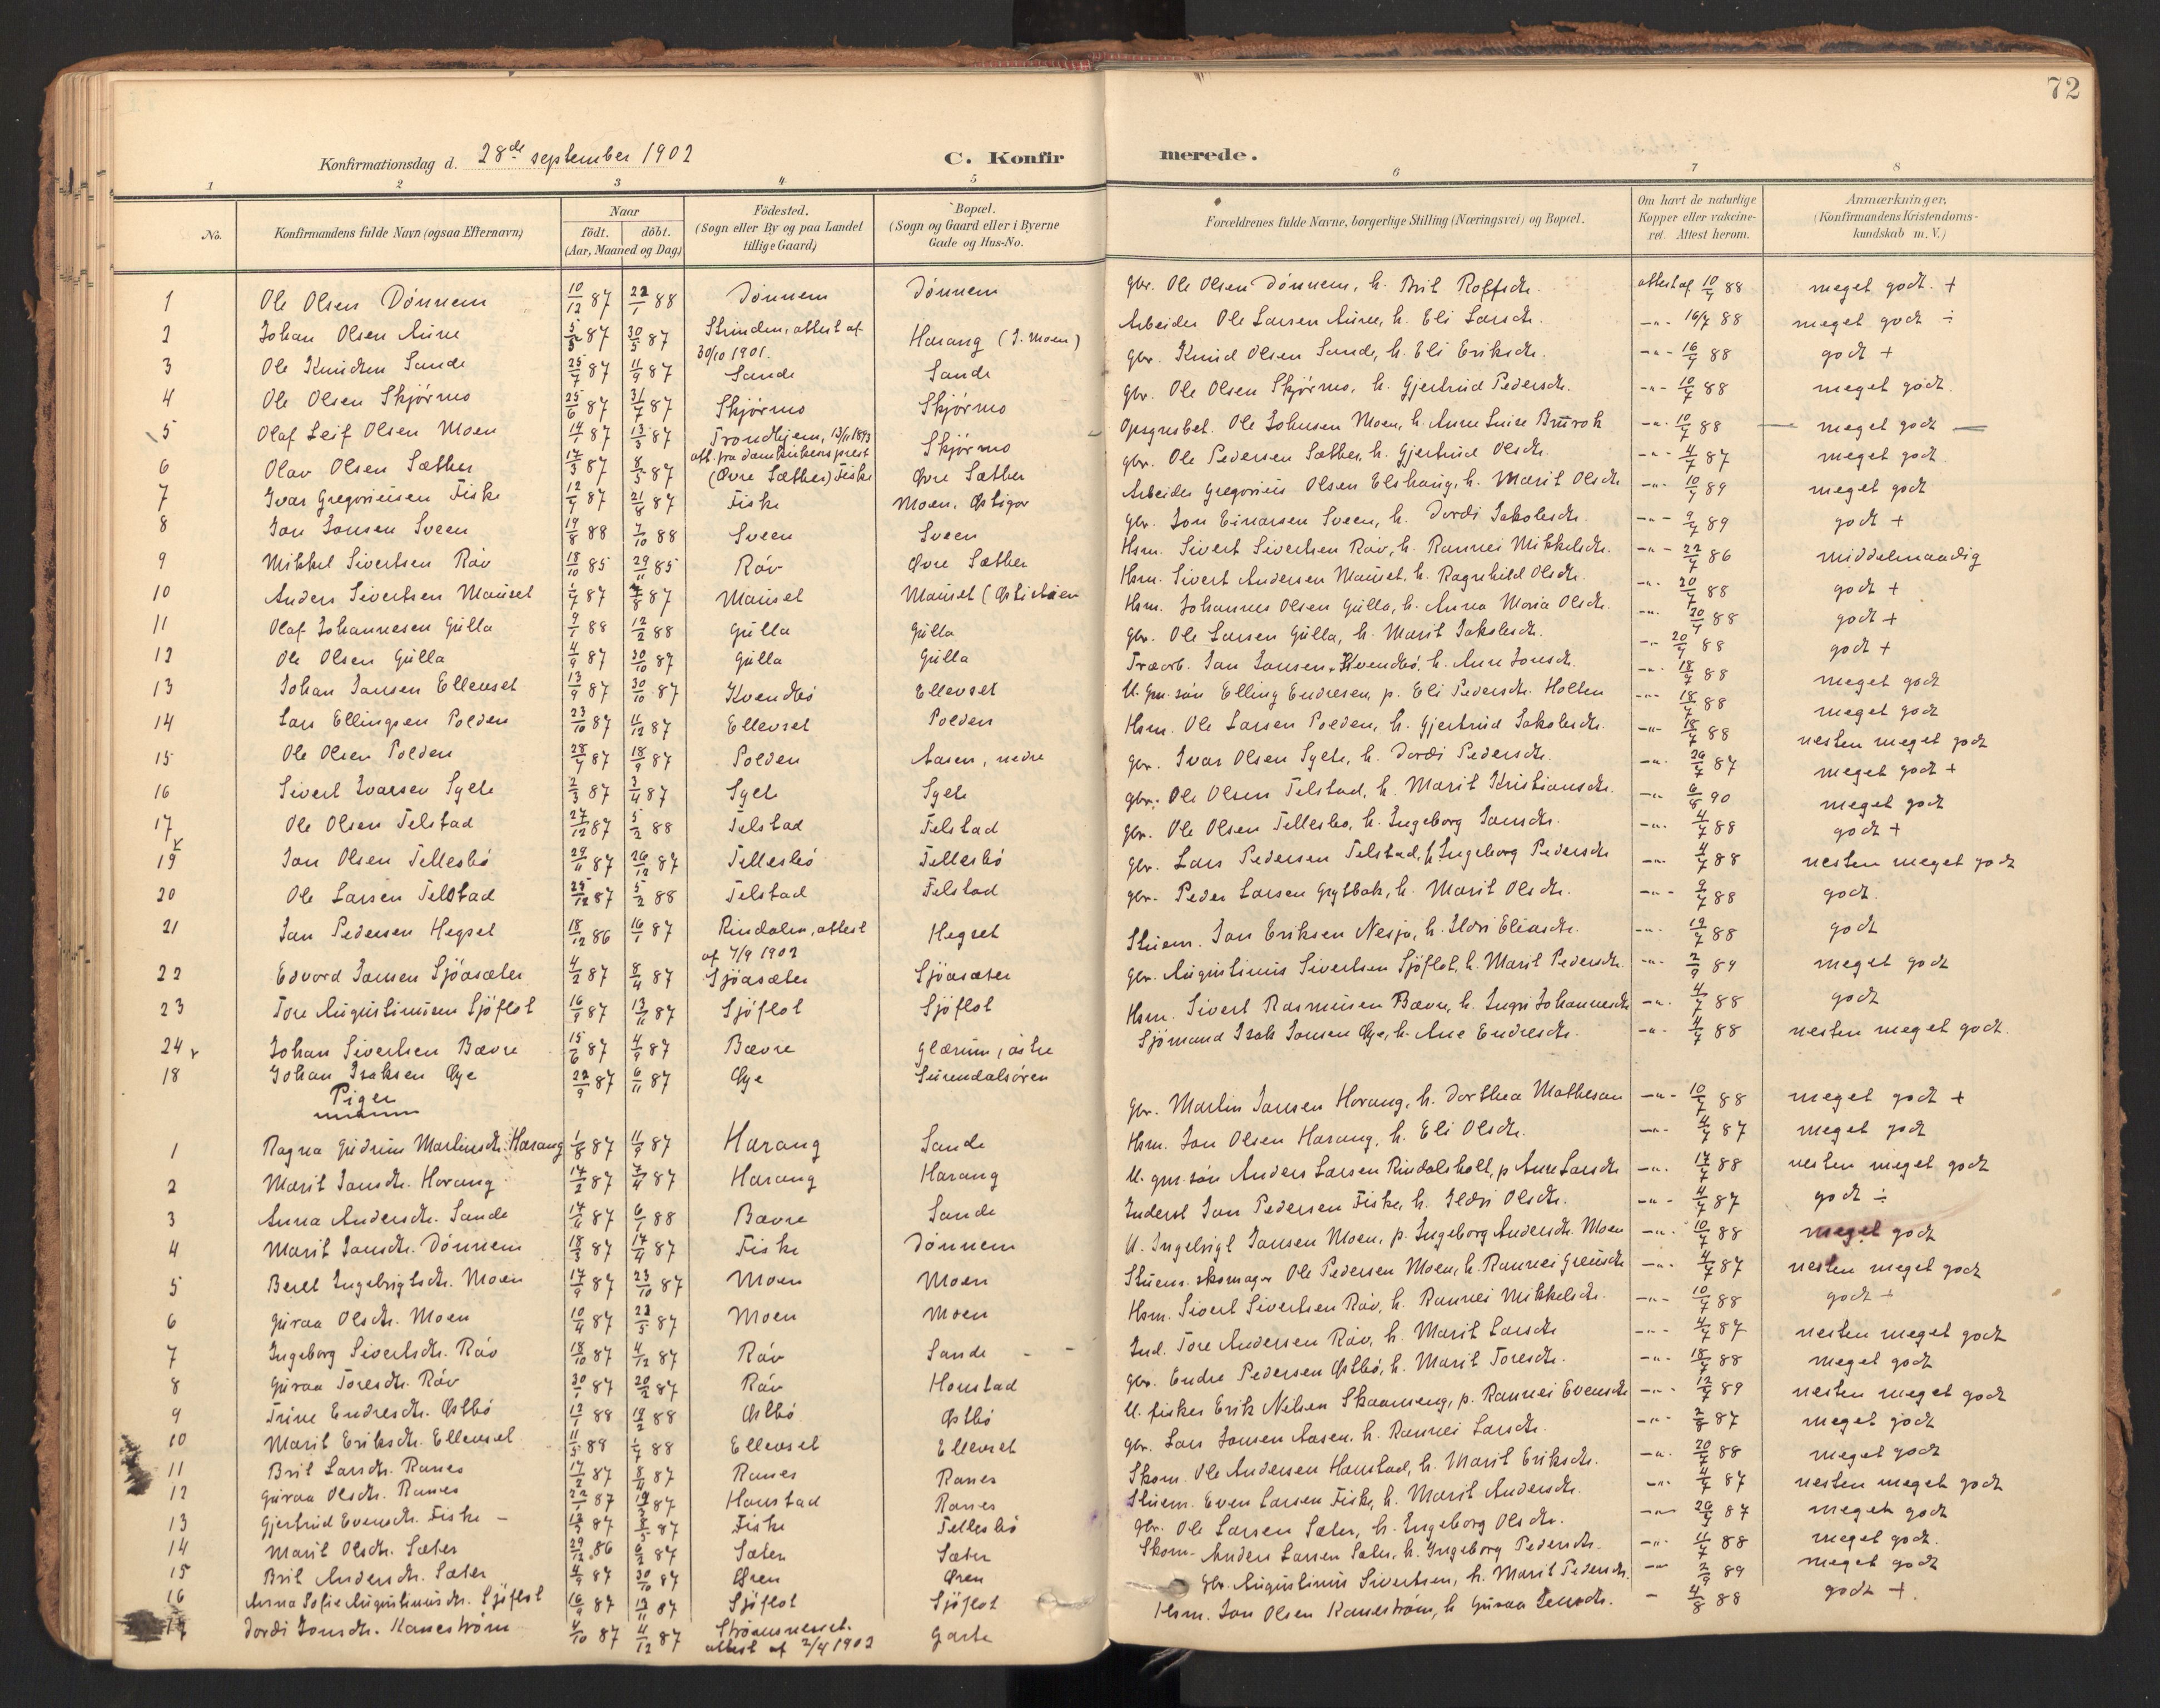 72
Konfirmationsdag d. 28de september 1902
C. Konfirmerede.
1 2 3 4 5 6 7 8
No.
Konfirmandens fulde Navn (ogsaa Efternavn)
Naar
födt. döbt.
(Aar, Maaned og Dag)
Födested.
(Sogn eller By og paa Landet
tillige Gaard)
Bopæl.
(Sogn og Gaard eller i Byerne
Gade og Hus-No.
Forældrenes fulde Navne, borgerlige Stilling (Næringsvei) og Bopæl.
Om havt de naturlige
Kopper eller vakcine-
ret. Attest herom.
Anmærkninger.
(Konfirmandens Kristendoms-
kundskab m. V.)
1 Ole Olsen Dönnem 10/12 87 22/1 88 Dönnem Dönnem gbr. Ole Olsen Dönnem, h. Brit Rolfsdtr. attest af 10/7 88 meget godt. +
2 Johan Olsen Aune 87 30/5 87 Strinden, attest af 30/10 1901. Harang (J. Moen) Arbeider Ole Larsen Aune, h. Eli Larsdtr. -"- 16/7 88 meget godt ÷
3 Ole Knudsen Sande 25/7 87 11/9 87 Sande Sande gbr. Knud Olsen Sande, h. Eli Eriksdtr. -"- 16/7 88 godt +
4 Ole Olsen Skjörmo 25/6 87 31/7 87 Skjörmo Skjörmo gbr. Ole Olsen Skjörmo, h. Gjertrud Pedersdtr. -"- 10/7 88 meget godt.
5 Olaf Leif Olsen Moen 14/1 87 13/3 87 Trondhjem, 13/11 1893 att. fra domkirkens prest Skjörmo Ole Johnsen Moen, h. Anne Luise -"- 10/7 88 meget godt
6 Olav Olsen Sæther 17/3 87 8/5 87 (Övre Sæther) Fiske Övre Sæther gbr. Ole Pedersen Sæther, h. Gjertrud Olsdtr. -"- 4/7 87 meget godt
7 Ivar Gregoriusen Fiske 87 21/8 87 Fiske Moen, Arbeider Gregorius Olsen Elshaug, h. Marit Olsdtr -"- 10/7 89 meget godt
8 Jon Jonsen Sveen 19/8 88 7/10 88 Sveen Sveen gbr. Jon Einarsen Sveen, h. Dordi Jakobsdtr. -"- 9/7 89 godt +
9 Mikkel Sivertsen Röv 18/10 85 29/11 85 Röv Övre Sæther Hsm. Sivert Sivertsen Röv, h. Rannei Mikkelsdtr. -"- 22/7 86 middelmaadig
10 Anders Sivertsen Mauset 87 87 Mauset Mauset Hsm. Sivert Andersen Mauset, h. Ragnhild Olsdtr. -"- 20/7 88 godt +
11 Olaf Johannesen Gulla 9/1 88 12/2 88 Gulla Gulla Hsm. Johannes Olsen Gulla, h. Anna Maria Olsdtr. -"- 20/7 88 godt +
12 Ole Olsen Gulla 4/9 87 30/10 87 Gulla Gulla gbr. Ole Larsen Gulla, h. Marit Jakobsdtr. -"- 20/7 88 godt +
13 Johan Jansen Ellevset 13/9 87 30/10 87 Kvendbö Ellevset Træarb. Jon Jonsen Kvendbö, h. Ane Jonsdtr. -"- 18/7 88 meget godt
14 Lars Ellingsen Polden 23/10 87 11/12 87 Ellevset Polden U. gm. sön Elling Endresen, p. Eli Pedersdtr. Holten -"- 18/7 88 meget godt
15 Ole Olsen Polden 28/7 87 18/9 87 Polden Aasen, nedre Hsm. Ole Larsen Polden, h. Gjertrud Jakobsdtr. -"- 18/7 88 nesten meget godt
16 Sivert Ivarsen Syete 2/3 87 3/4 87 Sgete Sgete gbr. Ivar Olsen Sgete, h. Dordi Pedersdtr. -"- 26/7 87 meget godt +
17 Ole Olsen Telstad 27/12 87 5/2 88 Telstad Telstad gbr. Ole Olsen Telstad, h. Marit Kristiansdtr. -"- 6/8 90 meget godt
19 Jon Olsen Tellesbö 29/11 87 26/12 87 Tellesbö Tellesbö gbr. Ole Olsen Tellesbo, h. Ingeborg Jonsdtr. -"- 4/7 88 godt +
20 Ole Larsen Telstad 25/12 87 5/2 88 Telstad Telstad gbr. Lars Pedersen Telstad, h. Ingeborg Pedersdtr -"- 4/7 88 nesten meget godt
21 Jan Pedersen Hegset 18/12 86 16/1 87 Rindalen, attest af 7/9 1902 Hegset gbr. Peder Larsen Grytbak, h. Marit Olsdtr. -"- 9/7 88 godt.
22 Edvard Jansen Sjöasæter 4/2 87 8/4 87 Sjöasæter Sjöasæter Stuem. Jon Eriksen Nesja, h. Ildri Eliasdtr. -"- 12/7 88 godt
23 Tore Augustinusen Sjöflot 16/9 87 13/11 87 Sjöflot Sjöflot gbr. Augustinus Sivertsen Sjöflot, h. Marit Pedersdtr. -"- 2/9 89 meget godt
24 Johan Sivertsen Bævre 15/6 87 4/9 87 Bævre Glærum, östre Hsm. Sivert Rasmusen Bævre, h. Ingri Johannesdtr -"- 4/7 88 godt
18 Johan Isaksen Öye 22/9 87 6/11 87 Öye Surendalsören Sjömand Isak Jonsen Öye, h. Ane Endresdtr. -"- 4/7 88 nesten meget godt.
Piger
1 Ragna Gudrun Martinsdtr. Harang 1/8 87 11/9 87 Harang Sande gbr. Martin Jansen Harang, h. Dorthea Mathesen -"- 10/7 88 meget godt +
2 Marit Jonsdtr. Harang 14/2 87 87 Harang Harang Hsm. Jon Olsen Harang, h. Eli Olsdtr. -"- 4/7 87 meget godt
3 Anna Andersdtr. Sande 14/11 87 6/1 88 Bævre Sande U. gm. sön Anders Larsen Rindalsholt, p. Ane Larsdtr -"- 14/7 88 nesten meget godt
4 Marit Jonsdtr. Dönnem 18/3 87 17/4 87 Fiske Dönnem Inderst Jon Pedersen Fiske, h. Ildri Olsdtr. -"- 4/7 87 godt ÷
5 Beret Ingebrigtsdtr. Moen 17/9 87 23/10 87 Moen Moen U. Ingebrigt Jansen Moen, p. Ingeborg Andersdtr. Moen -"- 10/7 88 meget godt
6 Guraa Olsdtr. Moen 10/4 87 22/5 87 Moen Moen Stuem. skomager Ole Pedersen Moen, h. Rannei -"- 4/7 87 nesten meget godt
7 Ingeborg Sivertsdtr. Röv 18/10 87 4/12 87 Röv Sande Hsm. Sivert Sivertsen Röv, h. Rannei Mikkelsdtr. -"- 10/7 88 godt +
8 Guraa Toresdtr. Röv 30/1 87 20/2 87 Röv Honstad Ind. Tore Andersen Röv, h. Marit Larsdtr -"- 4/7 87 nesten meget godt
9 Trine Endresdtr. Östbö 12/1 88 19/2 88 Östbö Östbö gbr. Endre Pedersen Östbö, h. Marit Toresdtr. -"- 18/7 88 meget godt
10 Marit Eriksdtr. Ellevset 88 88 Ellevset Ellevset U. fisker Erik Nelsen, p. Rannei Evensdtr -"- 12/7 89 nesten meget godt
11 Brit Larsdtr. Ranes 17/2 87 8/4 87 Ranes Ranes gbr. Lars Jonsen Aasen, h. Rannei Larsdtr. -"- 2/8 87 meget godt
12 Guraa Olsdtr. Ranes 22/1 87 87 Honstad Ranes Skom. Ole Andersen Honstad, h. Marit Eriksdtr. -"- 20/7 88 meget godt
13 Gjertrud Evensdtr. Fiske 87 87 Fiske Tellesbö Stuem. Even Larsen Fiske, h. Marit Andersdtr. -"- 4/7 87 nesten meget godt
14 Marit Olsdtr. Sæter 29/12 86 6/2 87 Sæter Sæter gbr. Ole Larsen Sæter, h. Ingeborg Olsdtr. -"- 87 meget godt
15 Brit Andersdtr. Sæter 4/9 87 30/10 87 Øren Øren Skom. Anders Larsen Sæter, h. Ingeborg Pedersdtr. -"- 11/7 88 meget godt.
16 Anna Sofie Augustinusdtr. Sjöflot 16/9 87 13/11 87 Sjöflot Sjöflot gbr. Augustinus Sivertsen, h. Marit Pedersdtr. -"- 2/9 89 meget godt
17 Dordi Jonsdtr. Kaneström 4/10 87 4/12 87 Strömsneset. attest af 2/4 1902 Garte Hsm. Jon Olsen Kaneström, h. Guraa Jensdtr. 4/8 88 godt +.